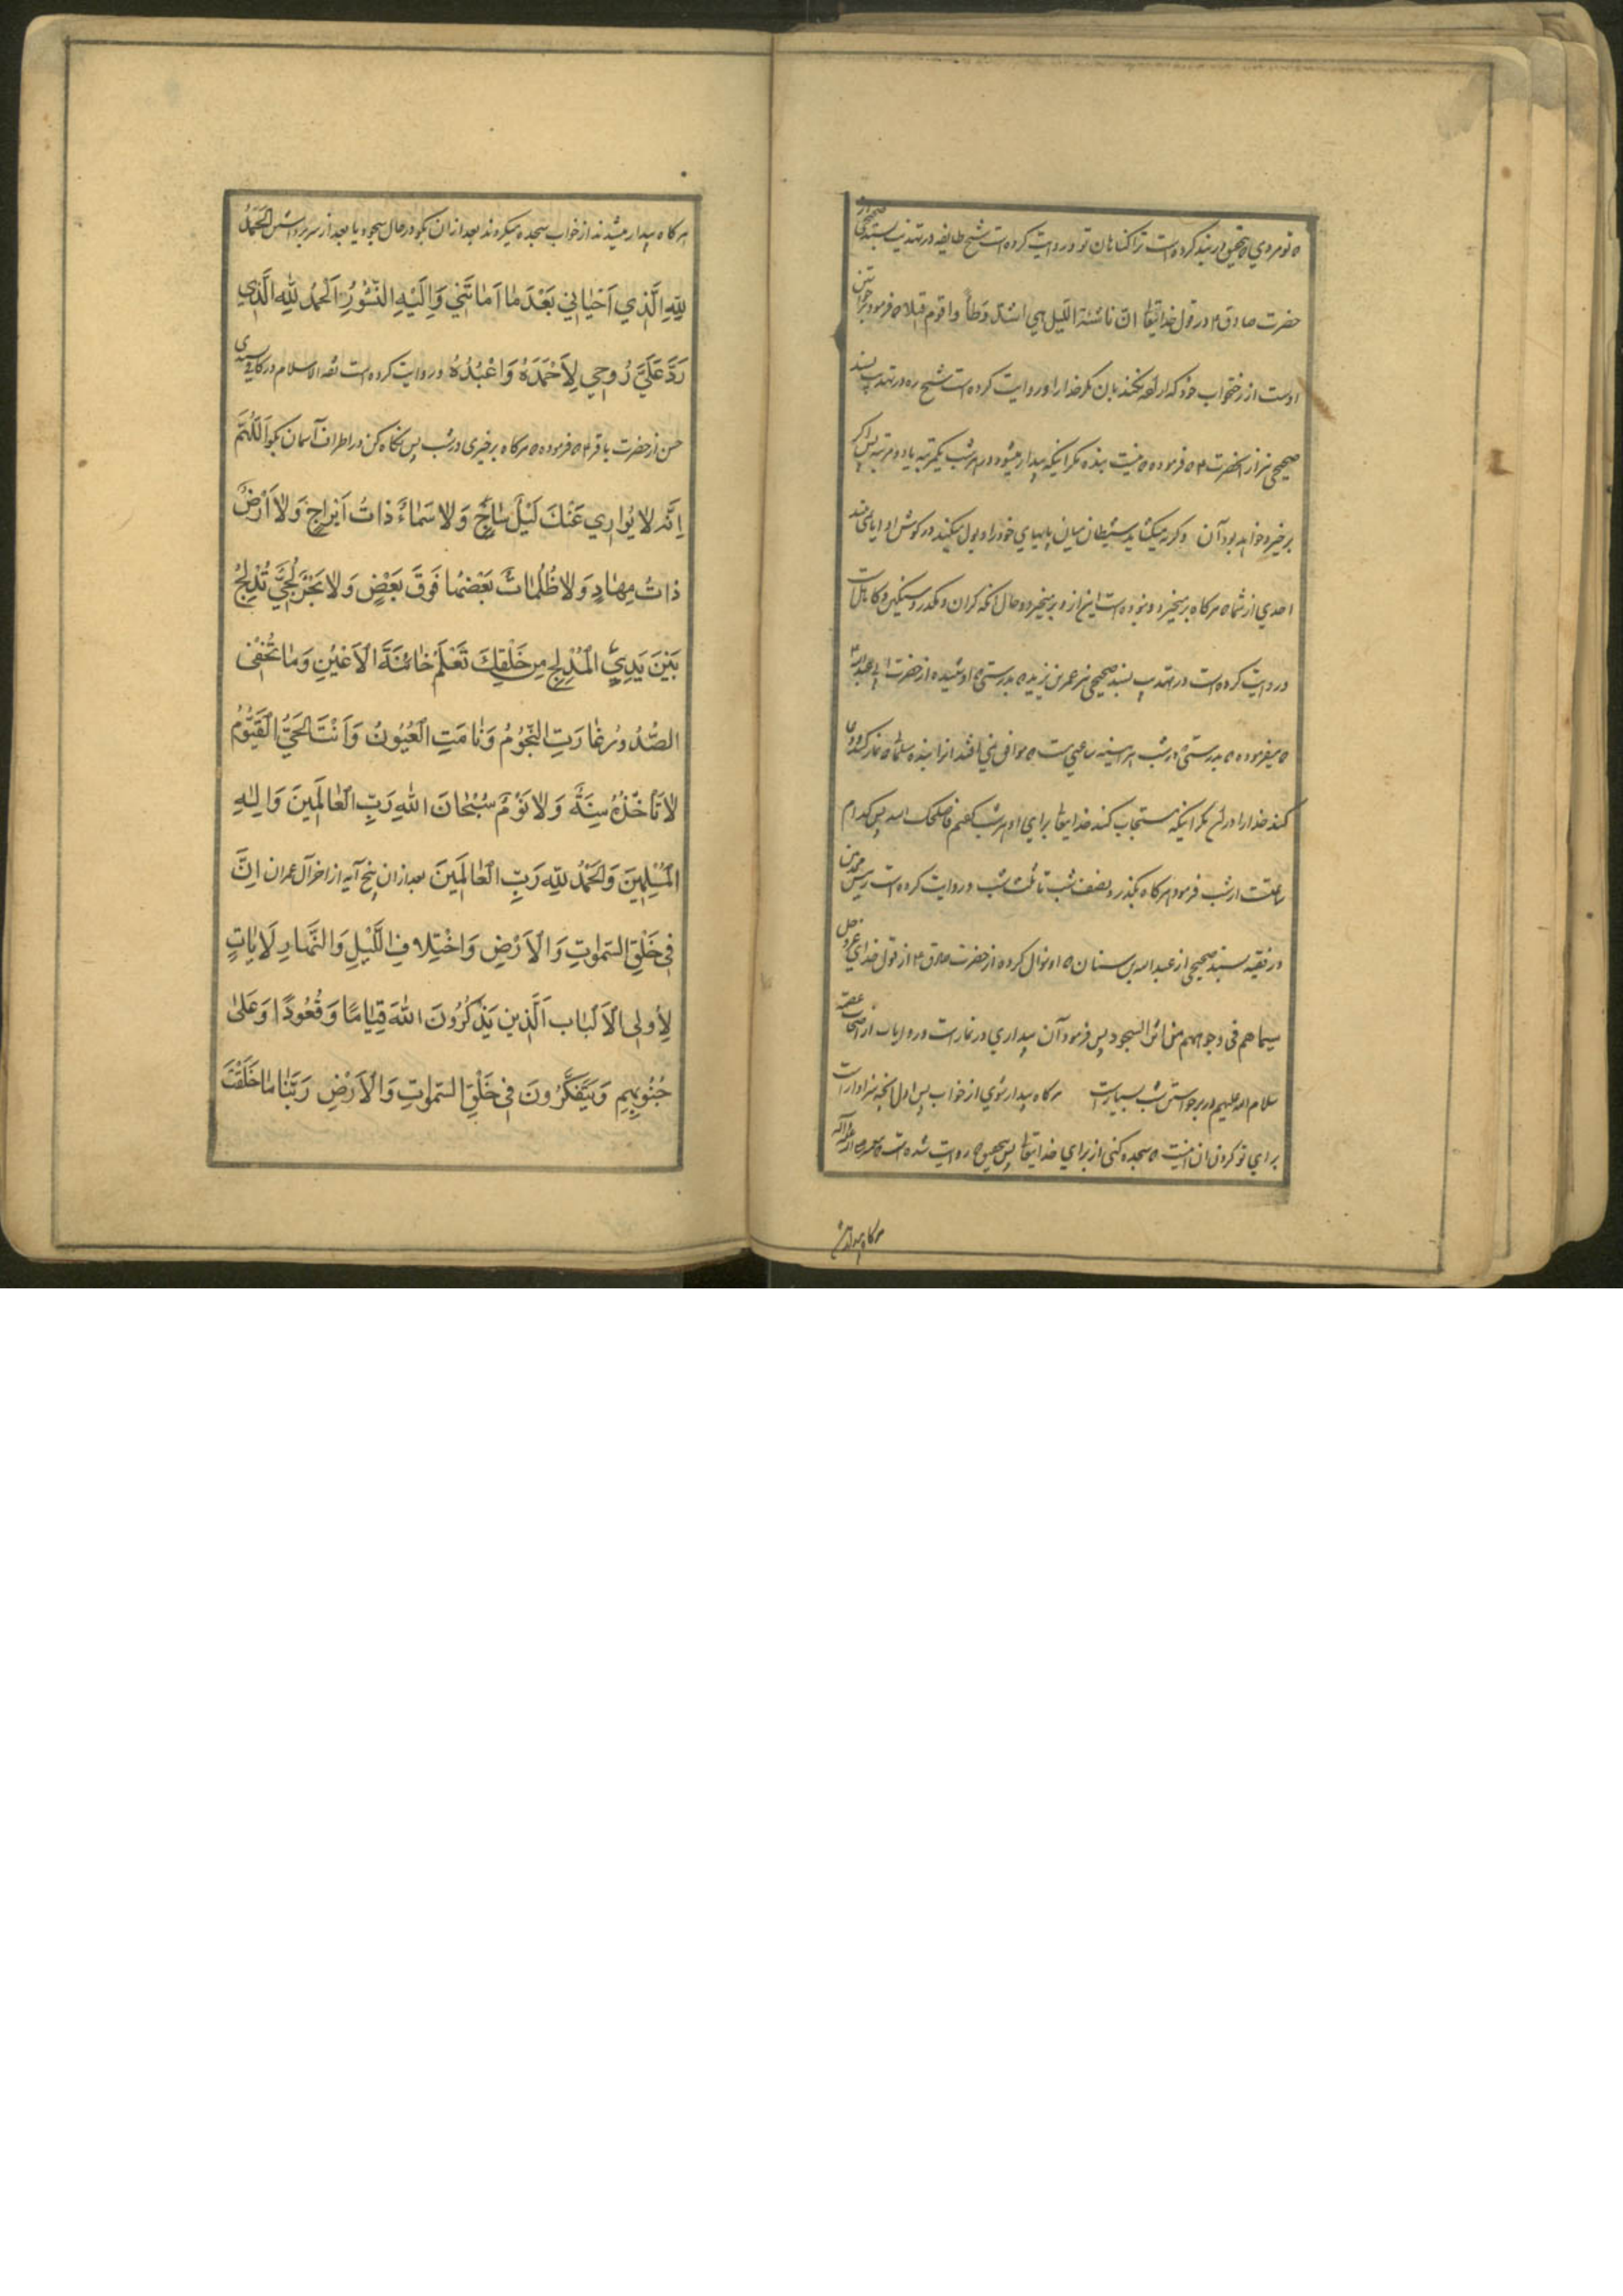 که تو مردی که بتحقیق در بند کرده است ترا کناهان تو و روایت کرده است شیخ طایفه در تهذیب بسند صحیح از
حضرت صادق ع در قول خدایتعالی ان ناشئة اللیل هی اشد وطأ و اقوم قیلا که فرمود برخواستن
اوست از رختخواب خود که اراده نکند بان مکر خدا را و روایت کرده است شیخ ره در تهذیب بسند
صحیح نیز از انحضرت ع که فرموده که نیست بنده مکر اینکه بیدار میشود در هر شب یکمرتبه یا دو مرتبه پس اکر
برخیزد خواهد بود آن و کرنه میکشاید شیطان میان پاهای خود را و بول میکند در کوش او ایا نمی بیند
احدی از شما که هر کاه برمیخیزد و نبوده است این از و برمیخیزد و حال انکه کران و مکدر و سنکین و کاهل است
و روایت کرده است در تهذیب بسند صحیح نیز عمر بن یزید که بدرستی که او شنیده از حضرت ابی عبدالله ع
که میفرموده که بدرستی که در شب هر اینه ساعتی است که موافق نمی افتد انرا بنده مسلمی که نماز کند و دعا
کند خدا را در ان مکر اینکه مستجاب کند خدایتعالی برای او هر شب کفتم فاصلحک الله پس کدام
ساعتست از شب فرمود هر کاه بکذرد نصف شب تا ثلث شب و روایت کرده است رییس محدثین
در فقیه بسند صحیح از عبدالله بن سنان که او سؤال کرده از حضرت صادق ع از قول خدای عز و جل
سیماهم فی وجوههم من اثر السجود پس فرمود آن بیداری در نماز است و روایات از اصحاب عصمة
سلام الله علیهم در برخواستن شب بسیارست هر کاه بیدار شوی از خواب پس اول انچه سزاوار است
برای تو کردن ان انیست که سجده کنی از برای خدایتعالی پس بتحقیق که روایت شده است که پیغمبر صلی الله علیه و آله
هر کاه بیدار میش
هر کاه بیدار میشدند از خواب سجده میکردند بعد از ان بکو در حال سجود یا بعد از سر برداشتن اَلْحَمْدُ
لِلّهِ الَّذِي اَحْيانِي بَعْدَ ما اَماتَنِي وَاِلَيْهِ النُّشُورُ اَلْحَمْدُ لِلّهِ الَّذِي
رَدَّ عَلَيَّ رُوحِي لِاَحْمَدَهُ وَاَعْبُدَهُ و روایت کرده است ثقة الاسلام در کافی بسندی
حسن از حضرت باقر ع که فرموده که هر کاه برخیزی در شب پس نکاه کن در اطراف آسمان بکو اَللّهُمَّ
اِنَّه لا يُوارِي عَنْكَ لَيْلٌ ساجٍ وَلا سَماءٌ ذاتُ اَبْراجٍ وَلا اَرْضٌ
ذاتُ مِهادٍ وَلا ظُلُماتٌ بَعْضُها فَوْقَ بَعْضٍ وَلا بَحْرٌ لُجِّيٌّ تُدْلِجُ
بَيْنَ يَدَيِ الْمُدْلِجِ مِنْ خَلْقِكَ تَعْلَمُ خائِنَةَ الْاَعْيُنِ وَما تُخْفِي
الصُّدُورُ غارَتِ النُّجُومُ وَنامَتِ الْعُيُونُ وَاَنْتَ الْحَيُّ الْقَيُّومُ
لا تَأْخُذُهُ سِنَةٌ وَلا نَوْمٌ سُبْحانَ اللهِ رَبِّ الْعالَمِينَ وَاِلهِ
الْمُسْلِمِينَ وَالْحَمْدُ لِلّهِ رَبِّ الْعالَمِينَ بعد از ان پنج آیه از اخر آل عمران اِنَّ
فِي خَلْقِ السَّمواتِ وَالْاَرْضِ وَاخْتِلافِ اللَّيْلِ وَالنَّهارِ لَاياتٍ
لِاُولِي الْاَلْبابِ اَلَّذِينَ يَذْكُرُونَ اللهَ قِيامًا وَقُعُودًا وَعَلى
جُنُوبِهِمْ وَيَتَفَكَّرُونَ فِي خَلْقِ السَّمواتِ وَالْاَرْضِ رَبَّنا ما خَلَقْتَ